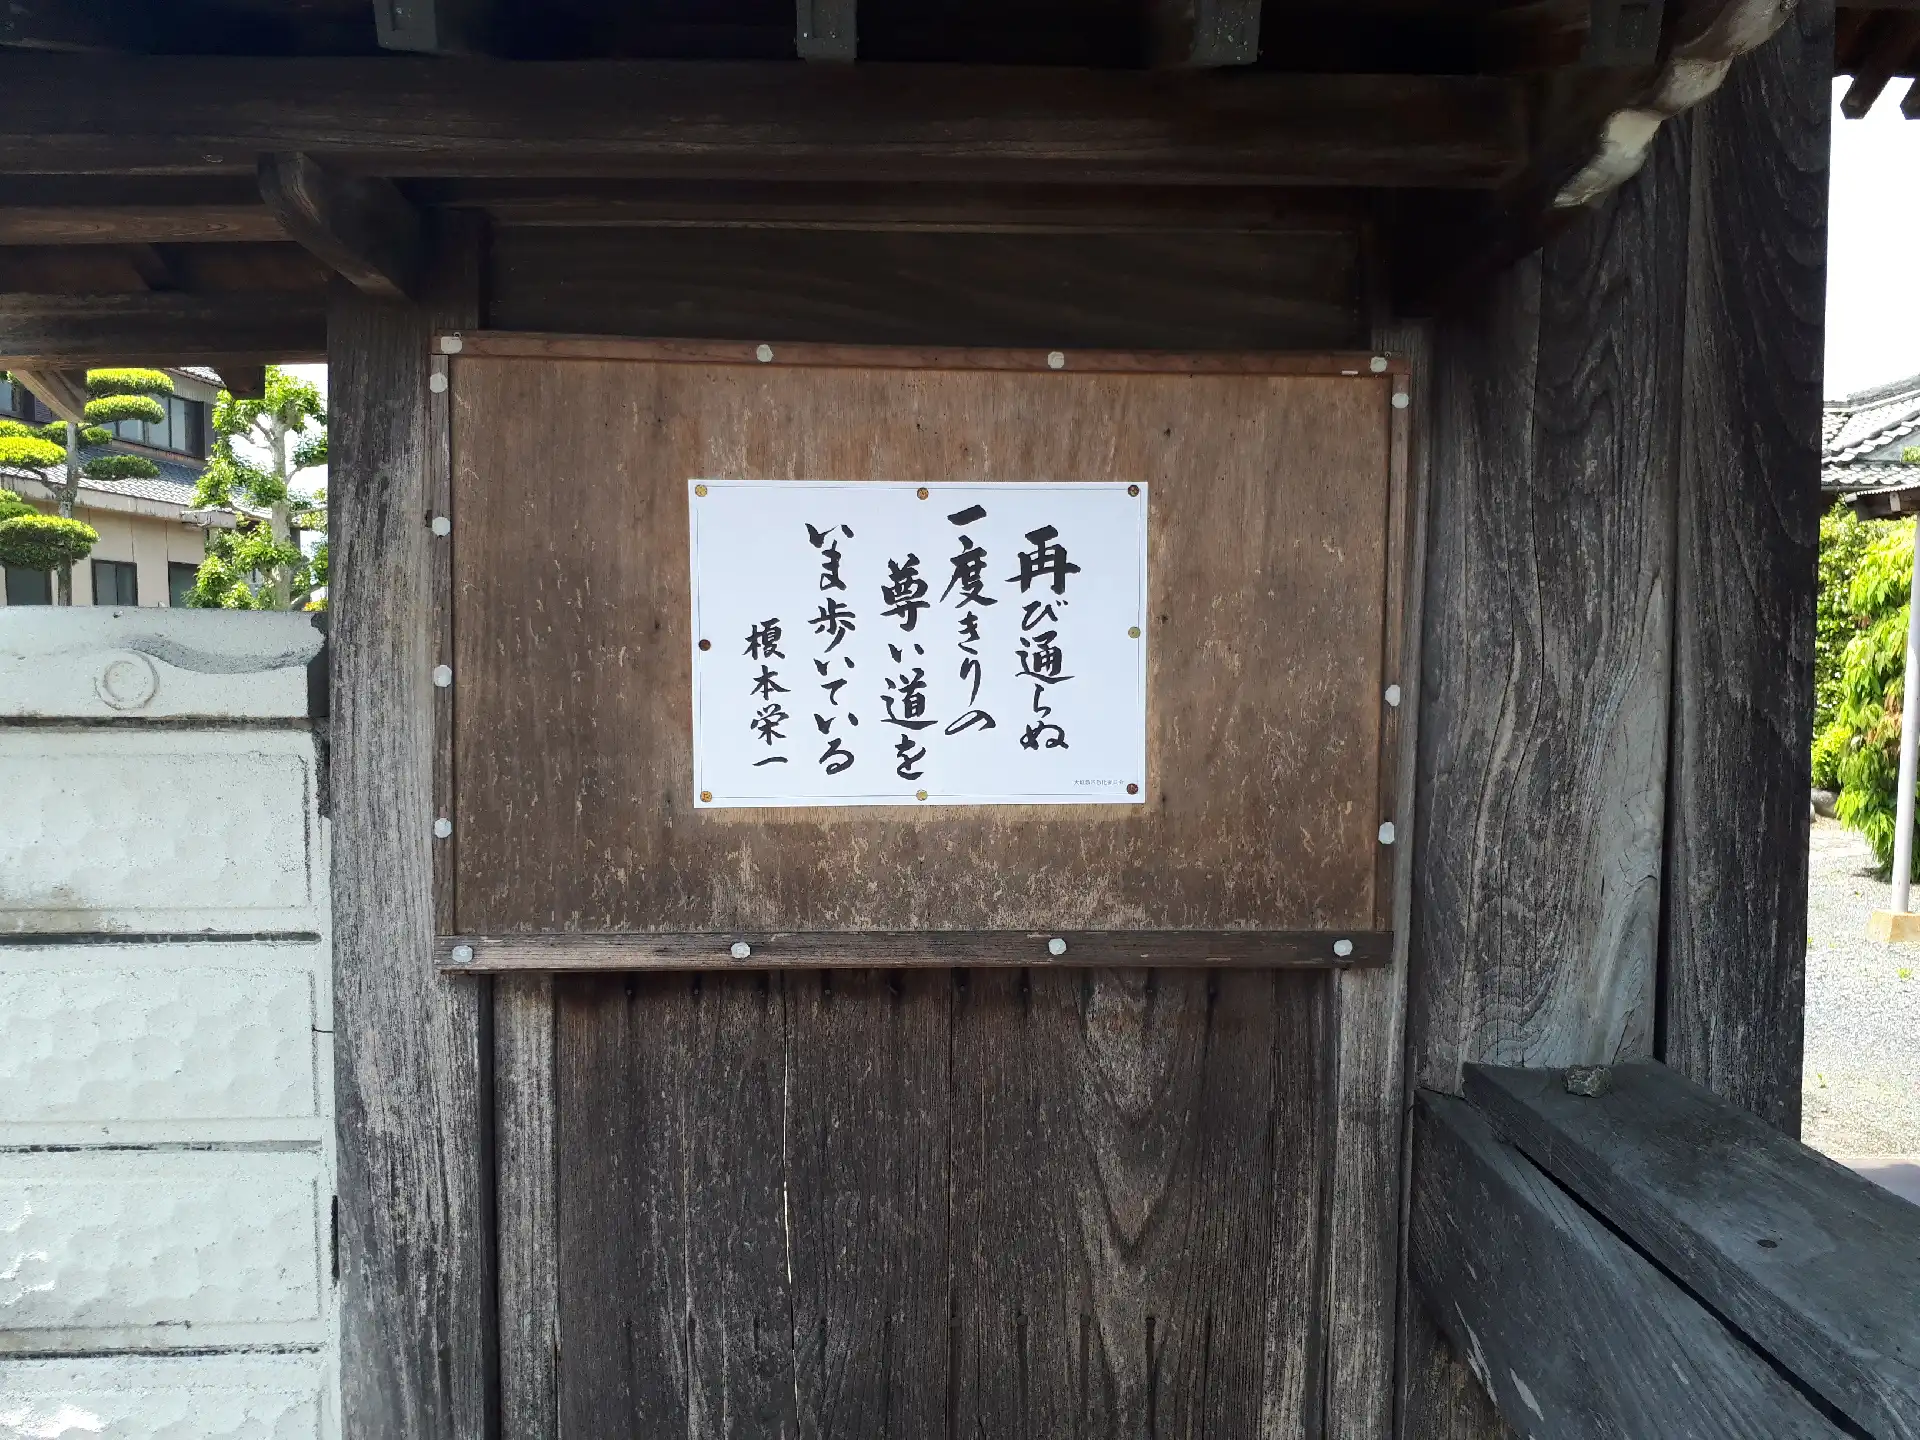 再び通らぬ
一度きりの
尊い道を
いま歩いている
榎本栄一